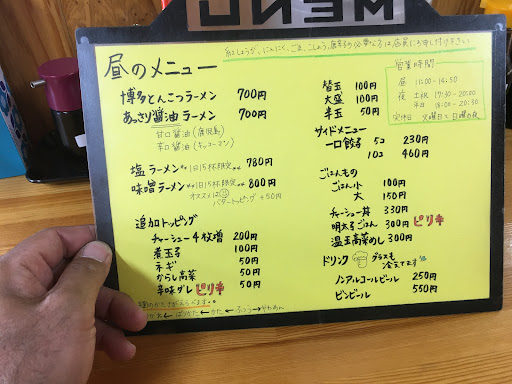 MENU
紅しょうが、にんにく、ごま、こしょう、
昼のメニュー
博多とんこつラーメン 700円
あっさり醤油ラーメン 700円
甘口醤油(鹿児島)
辛口醤油(キッコーマン)
塩ラーメン 1日15杯限定 780円
味噌ラーメン 1日15杯限定 800円
オススメは
バタートッピング+50円
追加トッピング
チャーシュー4枚増 200円
煮玉子 100円
ネギ 50円
からし高菜 50円
辛味ダレ ピリ辛 50円
営業時間
昼 11:00-14:50
夜 土祝 17:30-20:00
平日 18:00-20:30
定休日 火曜日と日曜の夜
替玉 100円
大盛 100円
半玉 50円
サイドメニュー
一口餃子 5コ 230円
10コ 460円
ごはんもの
ごはん小 100円
大 150円
チャーシュー丼 330円
明太子ごはん 300円 ピリ辛
温玉高菜めし 300円
ドリンク グラスも冷えてます
ノンアルコールビール 250円
ビンビール 550円
麺のかたさがえらべます。
ばりかた←かた←ふつう→やわめん